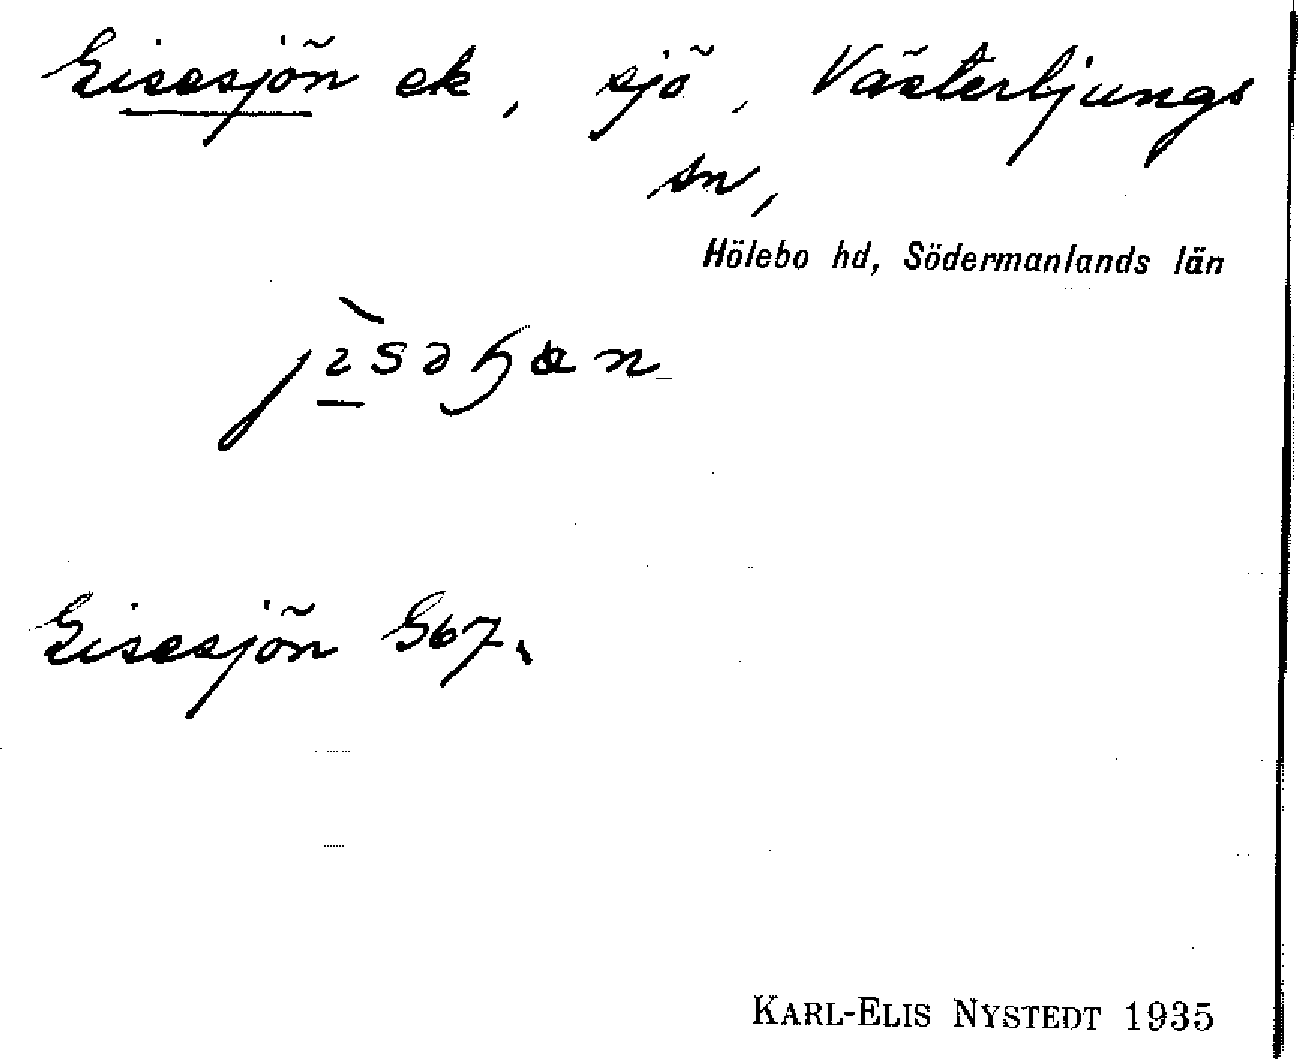 Gisesjön ek, sjö, Västerljungs
sn,
Hölebo hd, Södermanlands län
Gisesjön G67.
KARL-ELIS NYSTEDT 1935